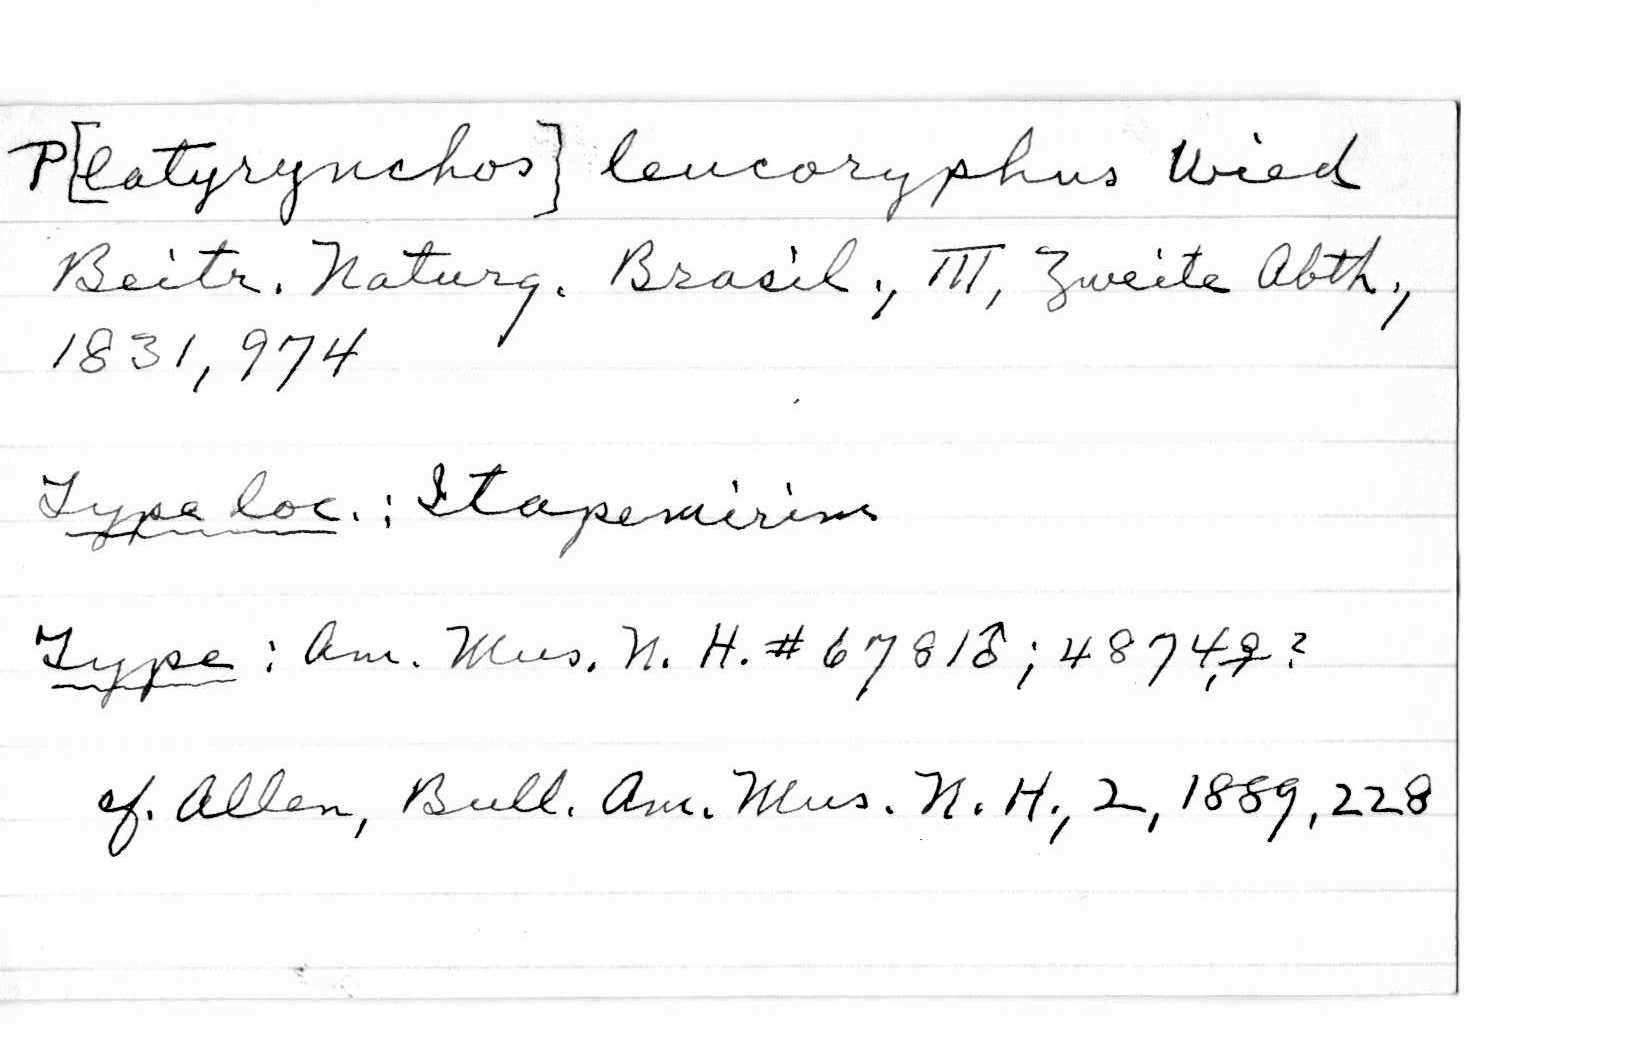 P[latyrynchos] leucoryphus Wied
Beitr. Naturg. Brasil., III, Zweite Abth.,
1831, 974
Type loc.: Itapemirim
Type: Am. Mus. N. H. # 6781♂; 4874,♀?
cf. Allen, Bull. Am. Mus. N. H., 2, 1889, 228